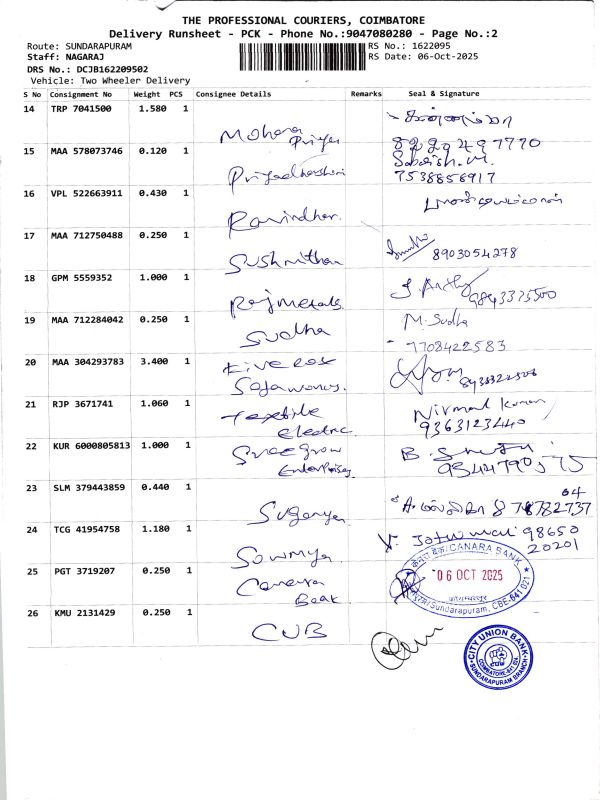 THE PROFESSIONAL COURIERS, COIMBATORE
Delivery Runsheet - PCK - Phone No.:9047080280 - Page No.:2
Route: SUNDARAPURAM
Staff: NAGARAJ
DRS No.: DCJB162209502
Vehicle: Two Wheeler Delivery
RS No.: 1622095
RS Date: 06-Oct-2025
S No Consignment No Weight PCS Consignee Details Remarks Seal & Signature
14 TRP 7041500 1.580 1 Mohana Priya
15 MAA 578073746 0.120 1 Priyadharshini
7538856917
16 VPL 522663911 0.430 1 Ravindhar
17 MAA 712750488 0.250 1 Sushmitha 8903054278
18 GPM 5559352 1.000 1 Raj metals
19 MAA 712284042 0.250 1 Sudha M. Sudha
7708422583
20 MAA 304293783 3.400 1
21 RJP 3671741 1.060 1 Textile Electric Nirmal Kumar
9363123440
22 KUR 6000805813 1.000 1 Sree grow Enterprises B.
23 SLM 379443859 0.440 1 Suganya
24 TCG 41954758 1.180 1 Sowmya 98650
20201
25 PGT 3719207 0.250 1 Canara Bank
CANARA BANK
06 OCT 2025
Sundarapuram, CBE-641 021
26 KMU 2131429 0.250 1 CUB
CITY UNION BANK
SUNDARAPURAM BRANCH